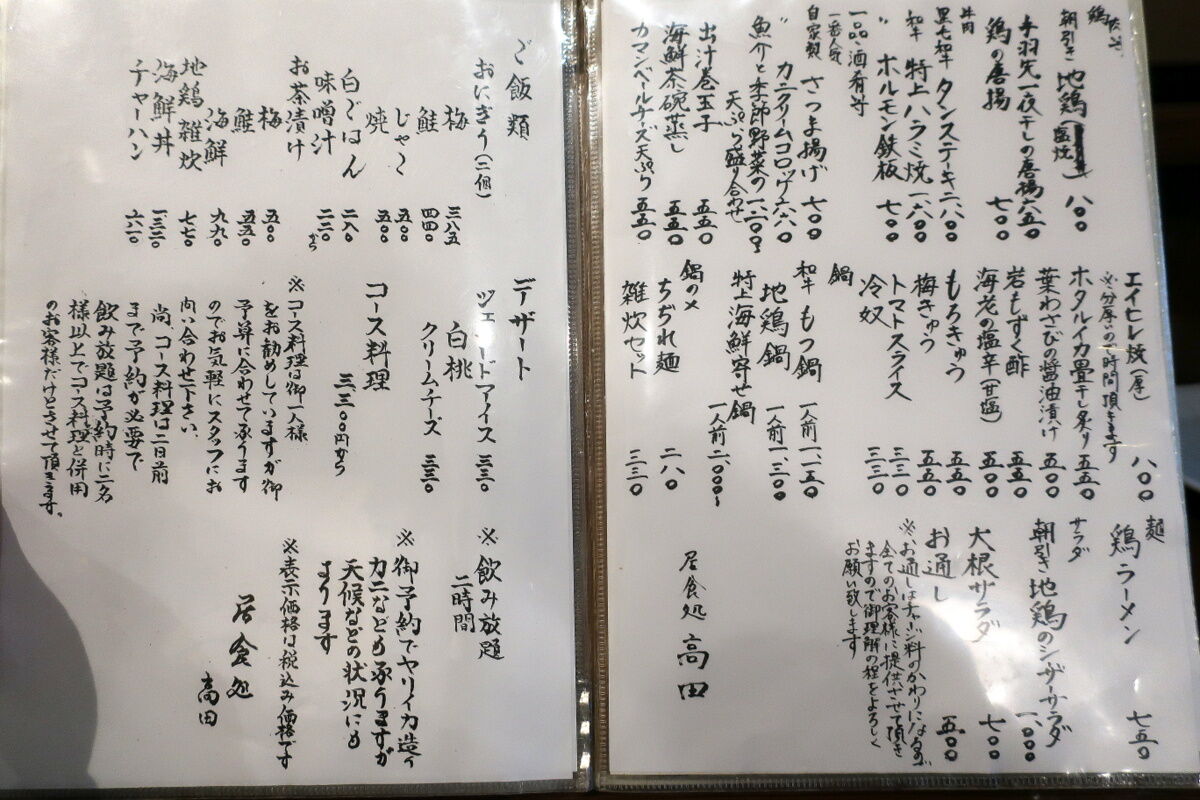 鶏
朝引き 地鶏(塩焼) 八〇〇
手羽先一夜干しの唐揚 六五〇
鶏の唐揚 七〇〇
牛肉
黒毛和牛 タンステーキ 二八〇〇
和牛 特上ハラミ焼 一六〇〇
〃 ホルモン鉄板 七〇〇
一品・酒肴
一番人気
自家製 さつま揚げ 七〇〇
〃 カニクリームコロッケ 六六〇
魚介と季節野菜の
天ぷら盛り合わせ 一二〇〇
出汁巻玉子 五五〇
海鮮茶碗蒸し 五五〇
カマンベールチーズ天ぷら 五五〇
エイヒレ焼(厚) 八〇〇
※分厚いので時間頂きます
ホタルイカ畳干し炙り 五五〇
葉わさびの醤油漬け 五〇〇
岩もずく酢 五五〇
海老の塩辛(甘塩) 五〇〇
もろきゅう 五五〇
梅きゅう 五五〇
トマトスライス 三三〇
冷奴 三三〇
鍋
和牛 もつ鍋 一人前 一、一五〇
地鶏鍋 一人前 一、三〇〇
特上海鮮寄せ鍋 一人前 二、〇〇〇〜
鍋の〆
ちぢれ麺 二八〇
雑炊セット 三三〇
麺
鶏ラーメン 七五〇
サラダ
朝引き地鶏のシーザーサラダ 一、〇〇〇
大根サラダ 七〇〇
お通し 五〇〇
※お通しはチャージ料のかわりになるので
全てのお客様に提供させて頂き
ますので御理解の程をよろしく
お願い致します
居食処 高田
ご飯類
おにぎり(二個)
梅 三八五
鮭 四四〇
じゃこ 五〇〇
焼 五〇〇
白ごはん 二八〇
味噌汁 二二〇から
お茶漬け
梅 五〇〇
鮭 五五〇
海鮮 九九〇
地鶏雑炊 七七〇
海鮮丼 一三二〇
チャーハン 六六〇
デザート
白桃
クリームチーズ 三三〇
コース料理
三、三〇〇円から
※コース料理は御一人様
をお勧めしていますが御
予算に合わせて承ります
のでお気軽にスタッフにお
問い合わせ下さい。
尚、コース料理は二日前
まで予約が必要で
飲み放題は予約時に二名
様以上でコース料理と併用
のお客様だけとさせて頂きます。
※飲み放題
二時間
※御予約でヤリイカ造り
カニなども承りますが
天候などの状況にも
よります
※表示価格は税込み価格です
居食処
高田